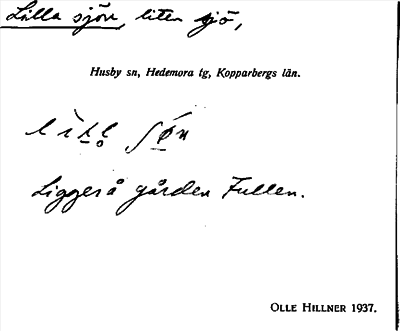 Lilla sjön, liten sjö,
Husby sn, Hedemora tg, Kopparbergs län.
Ligger å gården Fullen.
OLLE HILLNER 1937.